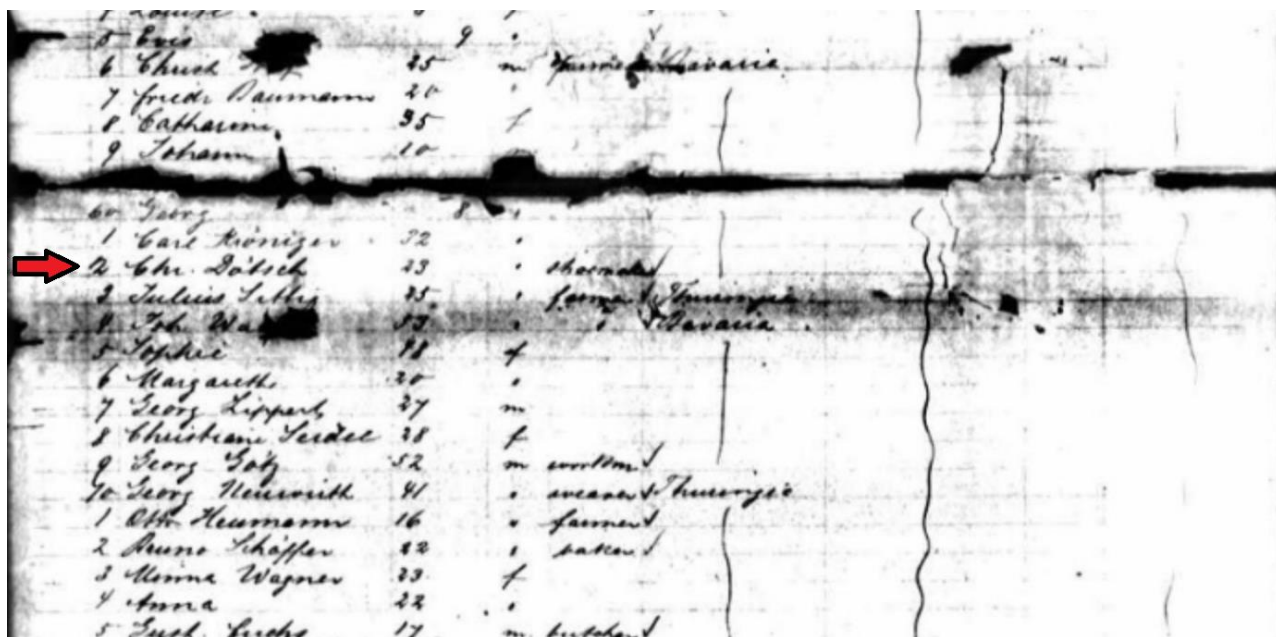 5 Evis 9 "
6 Christ 25 m Bavaria
7 Friedr Baumann 20 "
8 Catharina 35 f
9 Johann 10 "
60 Georg 8 "
1 Carl Kröniger 32 "
2 Chr. Dötsch 23 " shoemaker
3 Julius 25 " farmer Thuringia
4 Joh 53 " " Bavaria
5 Sophie 48 f
6 Margareth 20 "
7 Georg Lippert 27 m
8 Christiane Seidel 28 f
9 Georg Götz 52 m workm
70 Georg Neumuith 41 " weaver Thuringia
1 Otto Heumann 16 " farmer
2 Bruno Schäffer 22 " baker
3 Minna Wagner 23 f
4 Anna 22 "
5 Gust. Fuchs 17 m butcher